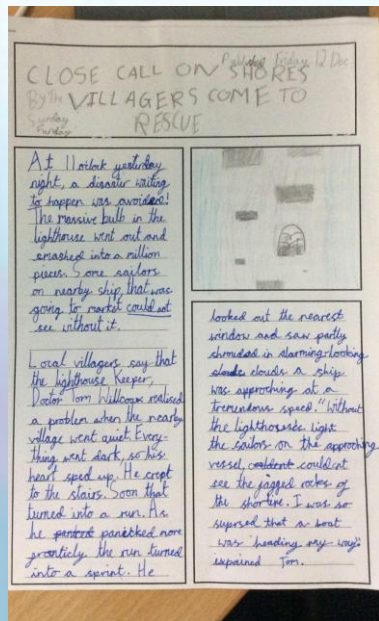 CLOSE CALL ON SHORES
Published Friday 12 Dec
By The VILLAGERS COME TO
Sunday
Funday
RESCUE
At 11 oclock yesterday
night, a disaster waiting
to happen was avoided!
The massive bulb in the
lighthouse went out and
smashed into a million
pieces. Some sailors
on nearby ship, that was
going to market could not
see without it.
Local villagers say that
the lighthouse Keeper,
Doctor Tom Willcoms realised
a problem when the nearby
village went quiet. Every-
thing went dark, so his
heart sped up. He crept
to the stairs. Soon that
turned into a run. As
he panicked more
franticly the run turned
into a sprint. He
looked out the nearest
window and saw partly
shrouded in alarming-looking
clouds a ship
was approching at a
tremendous speed. "Without
the lighthouse light
the sailors on the approching
vessel, couldent could at
see the jagged rocks of
the shortine. I was so
suprosed that a boat
was heading my way."
expained Tom.